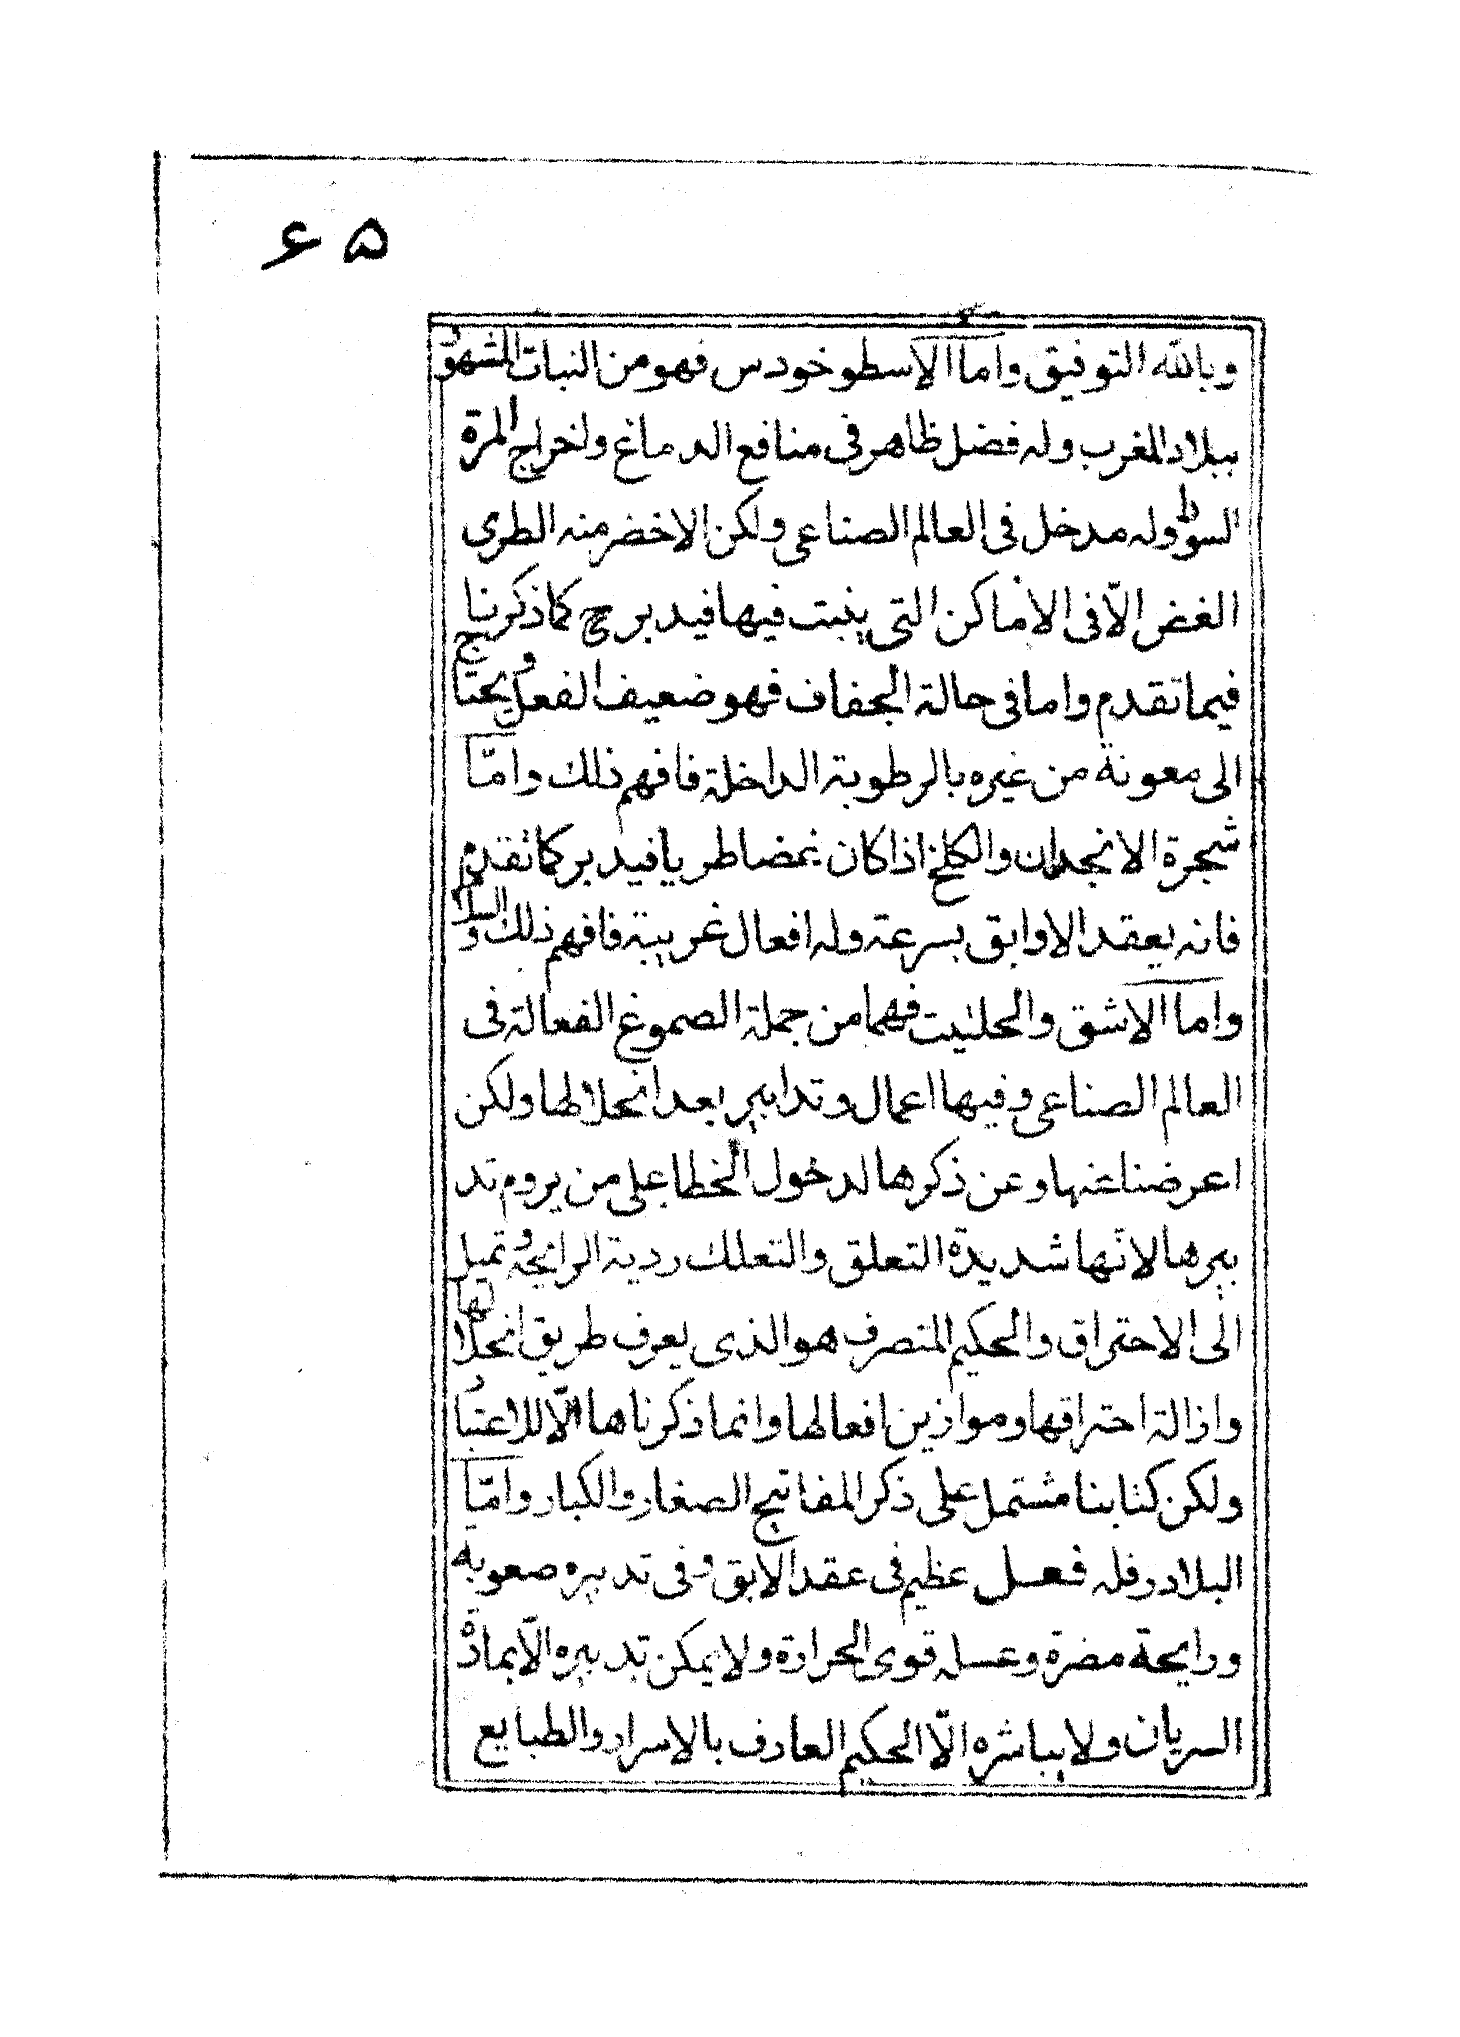 ۶۵
وبالله التوفيق واما الاسطوخودس فهو من النبات المشهور
ببلاد المغرب وله فضل ظاهر فى منافع الدماغ ولخراج المرة
السودا وله مدخل فى العالم الصناعى ولكن الاخضر منه الطرى
الغض الّا فى الاماكن التى ينبت فيها فيدبر ح كما ذكرنا
فيما تقدم واما فى حالة الجفاف فهو ضعيف الفعل ويحتاج
الى معونة من غيره بالرطوبة الداخلة فافهم ذلك وامّا
شجرة الانجدان والكلخ اذا كان غضا طريا فيدبر كما تقدم
فانه يعقد الاوابق بسرعة وله افعال غريبة فافهم ذلك والسلام
واما الاشق والحلتيت فهما من جملة الصموغ الفعالة فى
العالم الصناعى وفيها اعمال وتدابير بعد انحلالها ولكن
اعرضنا عنها وعن ذكرها لدخول الخطا على من يروم تد
بيرها لانّها شديدة التعلق والتعلك ردية الرايحة وتميل
الى الاحتراق والحكيم المتصرف هو الذى يعرف طريق انحلالها
وازالة احتراقها وموازين افعالها وانما ذكرناها الّا للاعتبار
ولكن كتابنا مشتمل على ذكر المفاتيح الصغار والكبار وامّا
البلادر فله فعل عظيم فى عقد الابق وفى تدبيره صعوبة
ورايحة مضرة وعسله قوى الحرارة ولا يمكن تدبيره الّا بماذة
السريان ولا يباشره الّا الحكيم العارف بالاسرار والطبايع